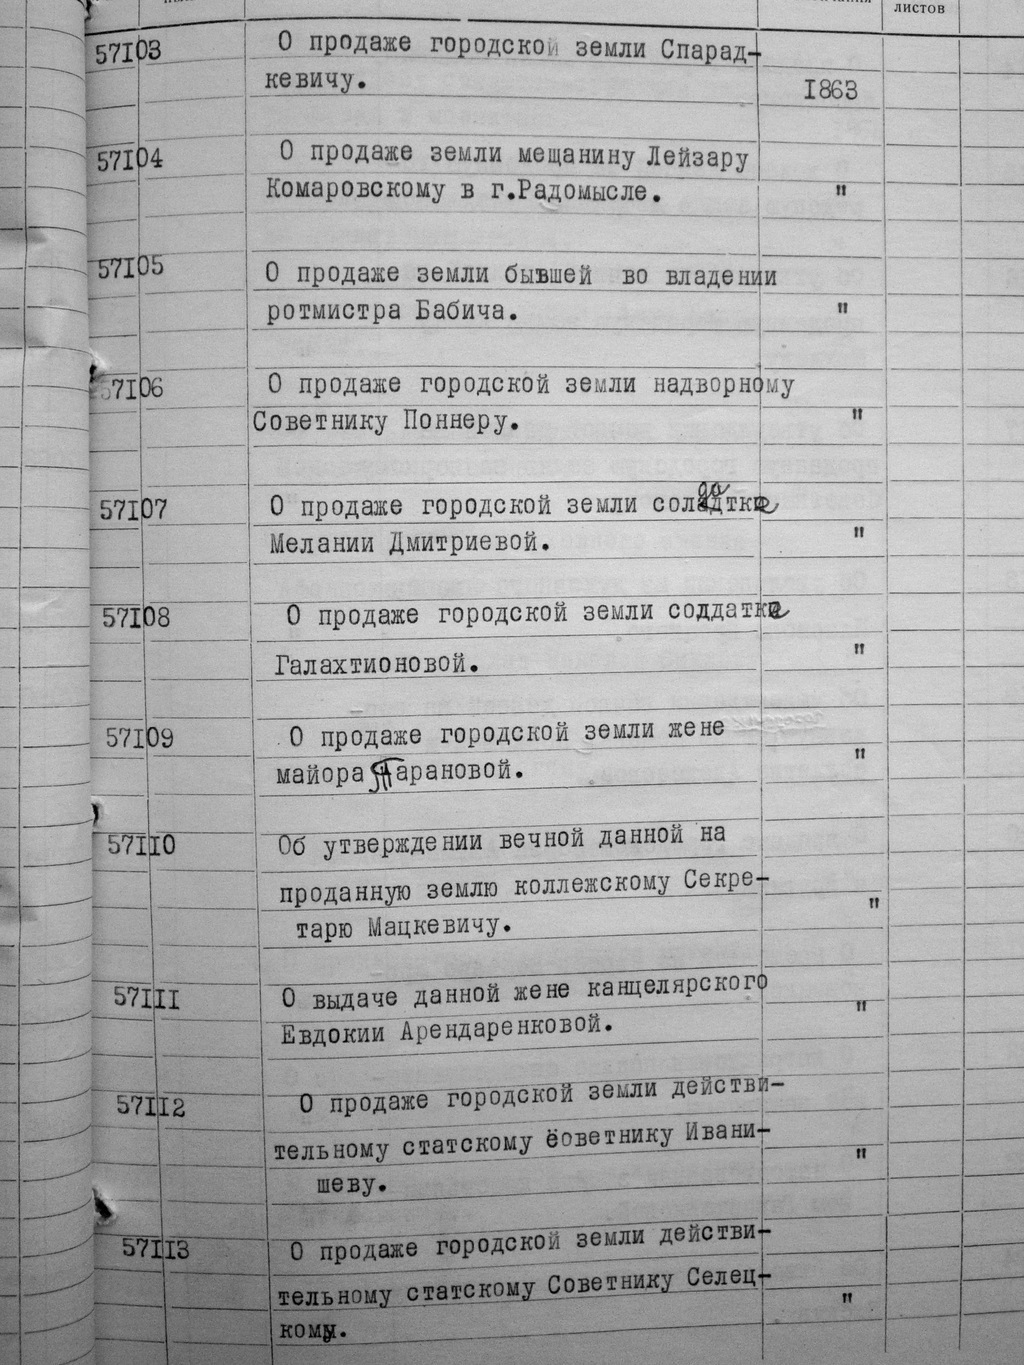 листов
57I03 О продаже городской земли Спарад-
кевичу.
I863
57I04 О продаже земли мещанину Лейзару
Комаровскому в г.Радомысле. "
57I05 О продаже земли бывшей во владении
ротмистра Бабича. "
57I06 О продаже городской земли надворному
Советнику Поннеру. "
57I07 О продаже городской земли солдатке
Мелании Дмитриевой. "
57I08 О продаже городской земли солдатке
Галахтионовой. "
57I09 О продаже городской земли жене
майора Тарановой. "
57II0 Об утверждении вечной данной на
проданную землю коллежскому Секре-
тарю Мацкевичу. "
57III О выдаче данной жене канцелярского
Евдокии Арендаренковой. "
57II2 О продаже городской земли действи-
тельному статскому советнику Ивани-
шеву. "
57II3 О продаже городской земли действи-
тельному статскому Советнику Селец-
кому. "